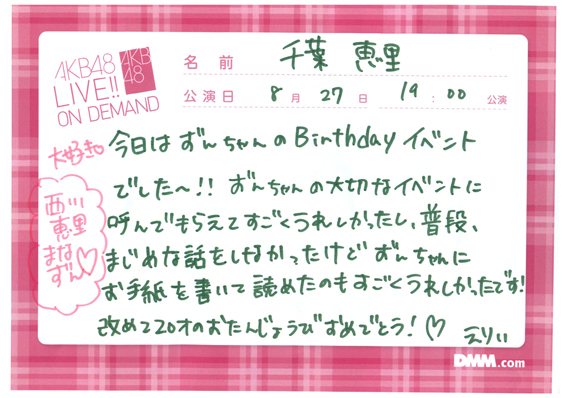 AKB48
LIVE!!
ON DEMAND
AKB
48
名前 千葉 恵里
公演日 8月27日 19:00 公演
大好き
今日はずんちゃんのBirthdayイベント
でした〜!! ずんちゃんの大切なイベントに
呼んでもらえてすごくうれしかったし、普段、
まじめな話をしなかったけどずんちゃんに
お手紙を書いて読めたのもすごくうれしかったです!
改めて20才のおたんじょうびおめでとう!♡
えりい
西川
恵里
まな
ずん♡
DMM.com